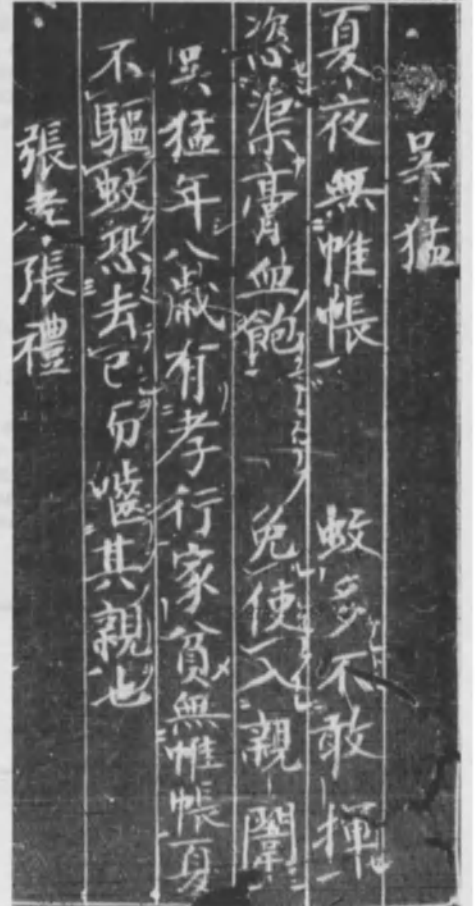 吳猛
夏夜無帷帳 蚊多不敢揮
恣渠膏血飽 免使入親闈
吳猛年八歲有孝行家貧無帷帳夏
不驅蚊恐去己而噬其親也
張孝張禮